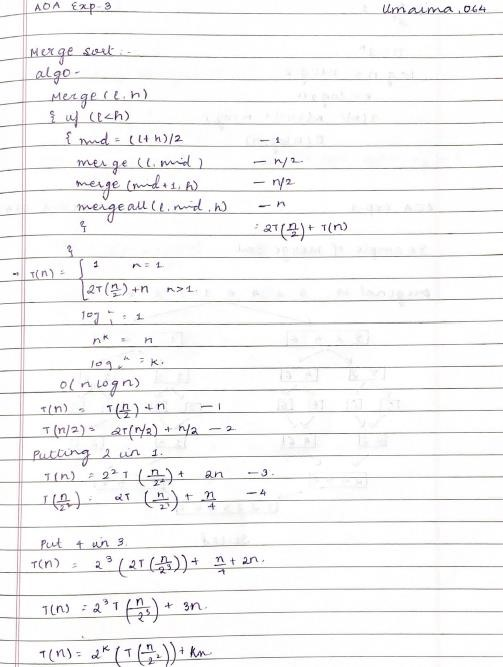 AOA Exp-3 Umaima.064
Merge sort:-
algo-
Merge (l, h)
{ if (l<h)
{ mid = (l+h)/2 — 1
merge (l, mid) — n/2.
merge (mid+1, h) — n/2
mergeall (l, mid, h) — n
} = 2T(n/2) + T(n)
}
T(n) = { 1 n=1
{ 2T(n/2)+n n>1.
= 1
n^k = n
= k.
O(n log n)
T(n) = T(n/2) + n — 1
T(n/2) = 2T(n/2) + n/2 — 2
Putting 2 in 1.
T(n) = 2² T(n/2²) + 2n — 3.
T(n/2²) = 2T + n/4 — 4
Put 4 in 3.
T(n) = 2³ (2T(n/2³)) + n/4 + 2n.
T(n) = 2³ T(n/2³) + 3n.
T(n) = 2^k (T(n/2²)) + kn